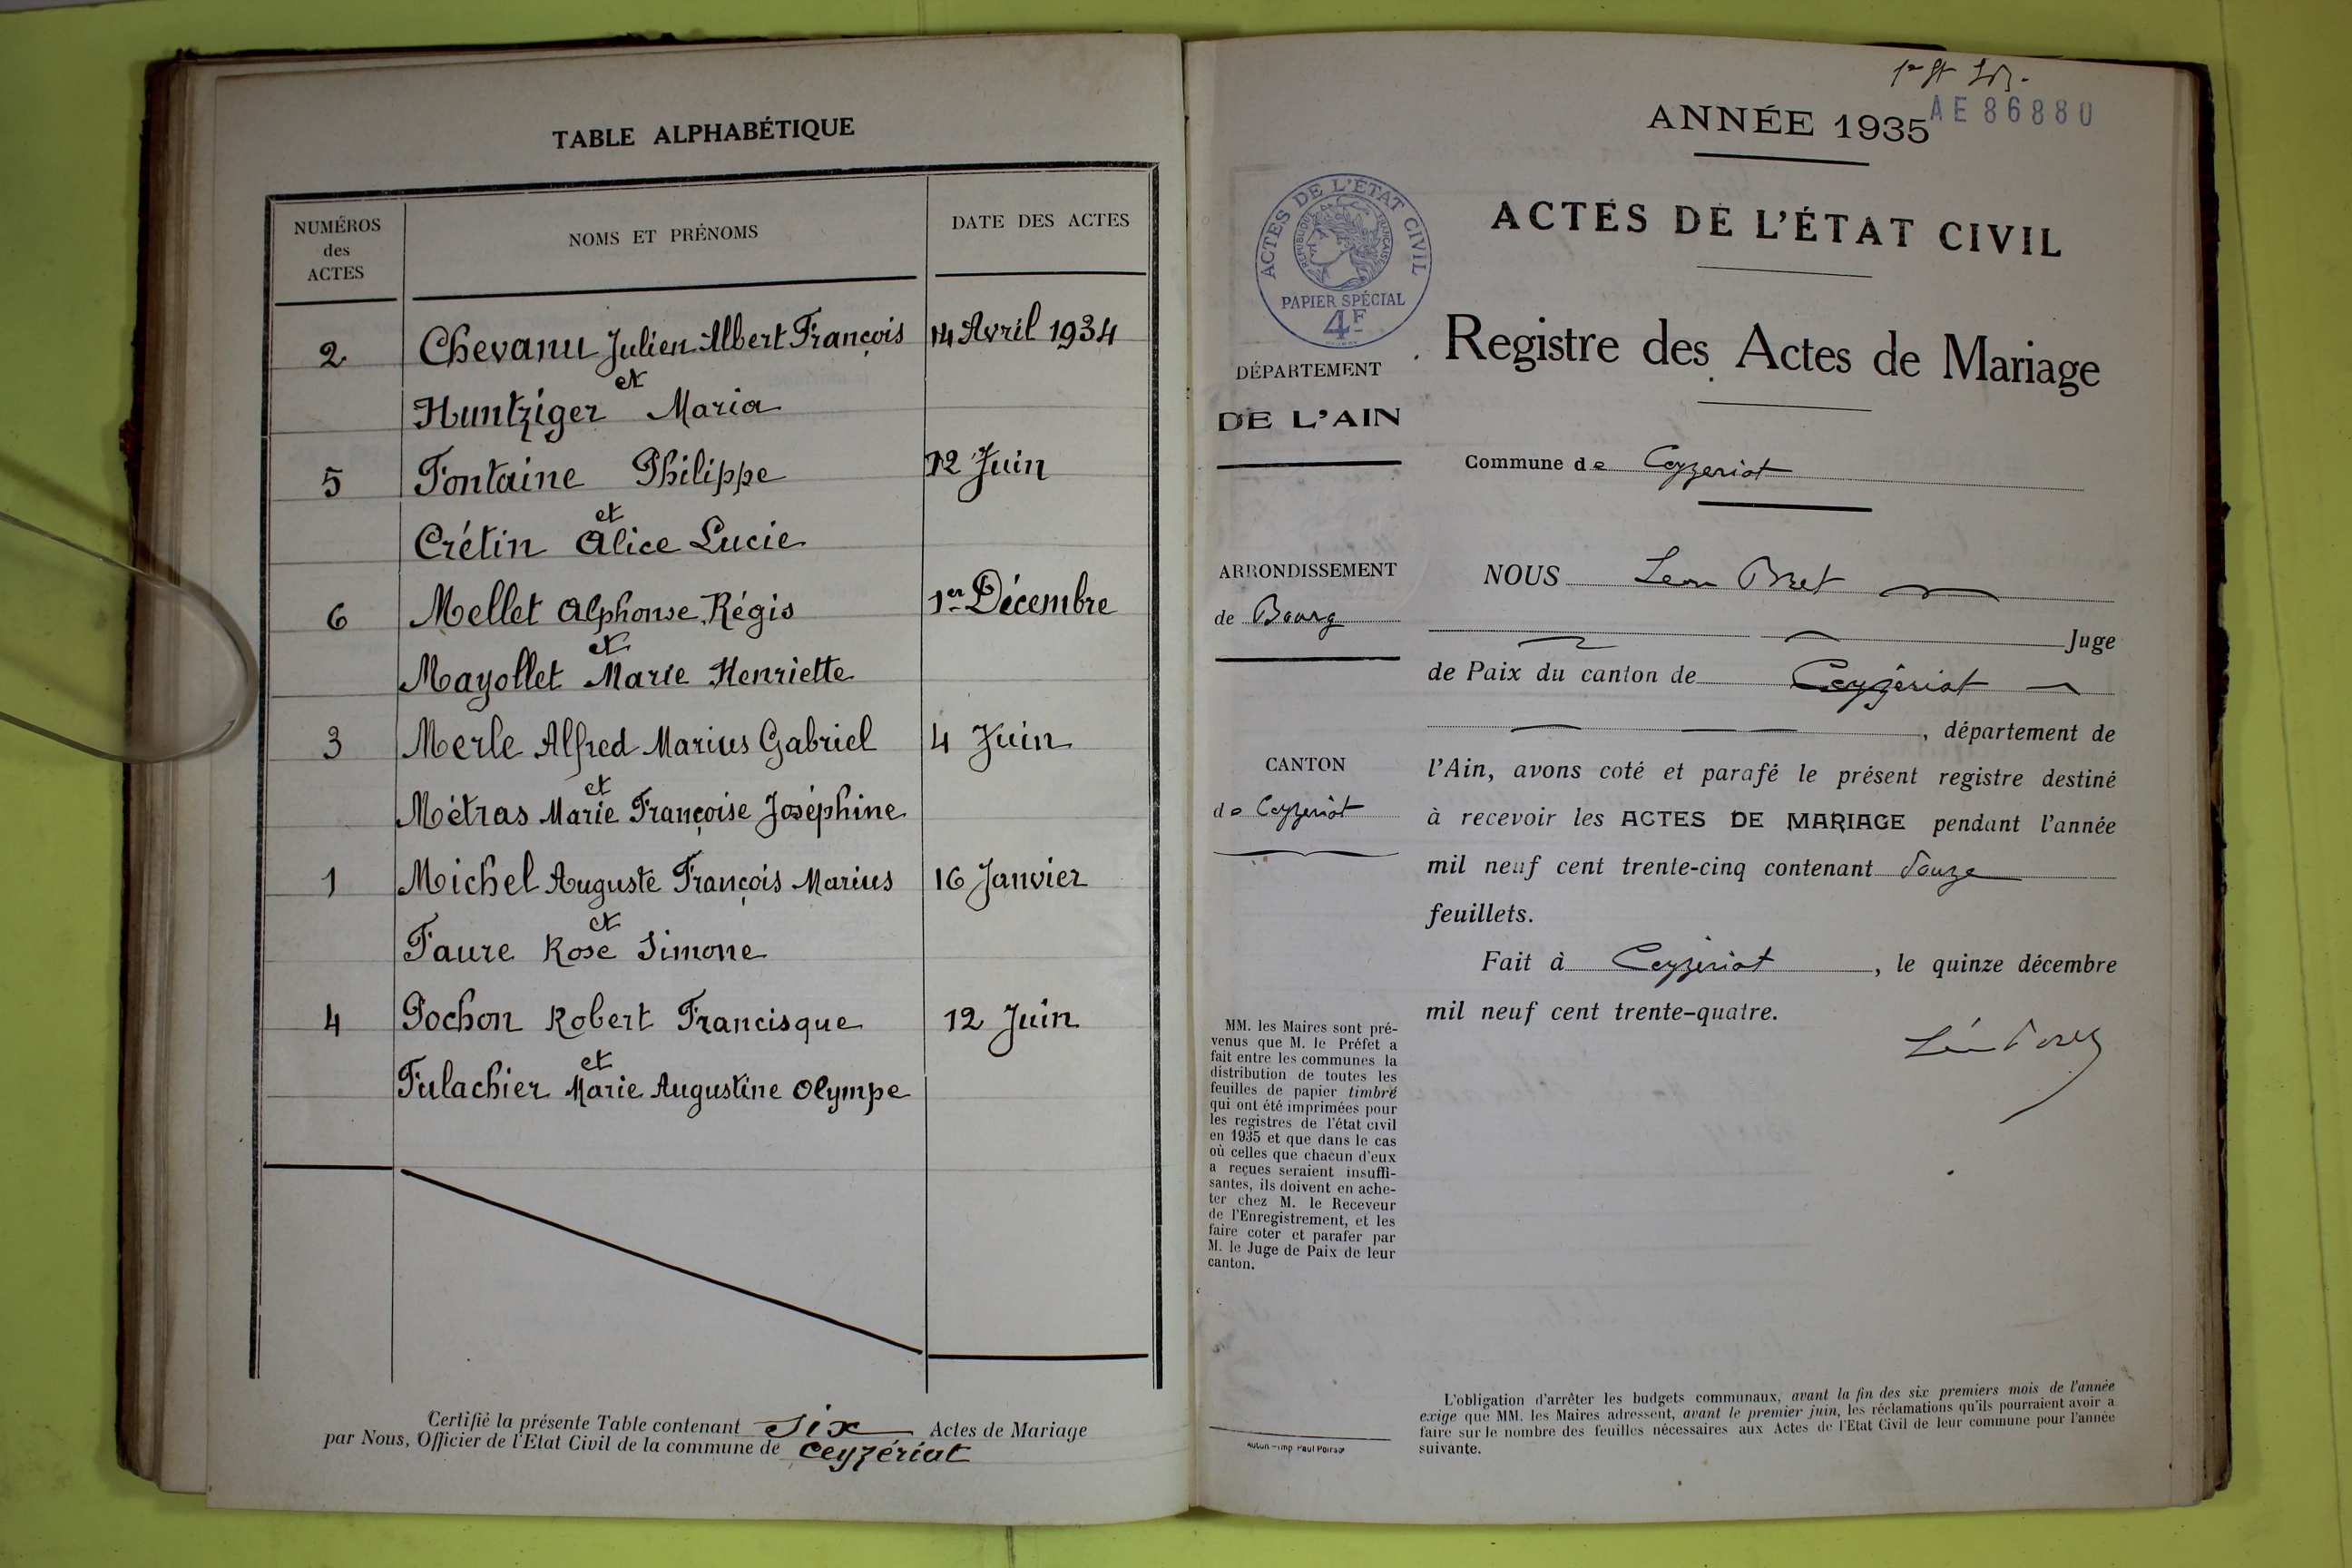 TABLE ALPHABÉTIQUE
NUMÉROS
des
ACTES
NOMS ET PRÉNOMS
DATE DES ACTES
2 Chevanu Julien Albert François 14 Avril 1934
et
Huntziger Maria
5 Fontaine Philippe 12 Juin
et
Crétin Alice Lucie
6 Mellet Alphonse Régis 1er Décembre
et
Mayollet Marie Henriette
3 Merle Alfred Marius Gabriel 4 Juin
et
Métras Marie Françoise Joséphine
1 Michel Auguste François Marius 16 Janvier
et
Faure Rose Simone
4 Pochon Robert Francisque 12 Juin
et
Fulachier Marie Augustine Olympe
Certifié la présente Table contenant six Actes de Mariage
par Nous, Officier de l'Etat Civil de la commune de Ceyzériat
AE 86880
ANNÉE 1935
ACTES DE L'ÉTAT CIVIL
ACTES DE L'ÉTAT CIVIL
RÉPUBLIQUE FRANÇAISE
PAPIER SPÉCIAL
4F
Registre des Actes de Mariage
DÉPARTEMENT
DE L'AIN
Commune de Ceyzeriat
ARRONDISSEMENT
de Bourg
CANTON
de Ceyzeriat
NOUS Leon Bret
Juge
de Paix du canton de Ceyzériat
, département de
l'Ain, avons coté et parafé le présent registre destiné
à recevoir les ACTES DE MARIAGE pendant l'année
mil neuf cent trente-cinq contenant douze
feuillets.
Fait à Ceyzériat, le quinze décembre
mil neuf cent trente-quatre.
MM. les Maires sont pré-
venus que M. le Préfet a
fait entre les communes la
distribution de toutes les
feuilles de papier timbré
qui ont été imprimées pour
les registres de l'état civil
en 1935 et que dans le cas
où celles que chacun d'eux
a reçues seraient insuffi-
santes, ils doivent en ache-
ter chez M. le Receveur
de l'Enregistrement, et les
faire coter et parafer par
M. le Juge de Paix de leur
canton.
Autun - Imp. Paul Poirson
L'obligation d'arrêter les budgets communaux, avant la fin des six premiers mois de l'année
exige que MM. les Maires adressent, avant le premier juin, les réclamations qu'ils pourraient avoir a
faire sur le nombre des feuilles nécessaires aux Actes de l'Etat Civil de leur commune pour l'année
suivante.